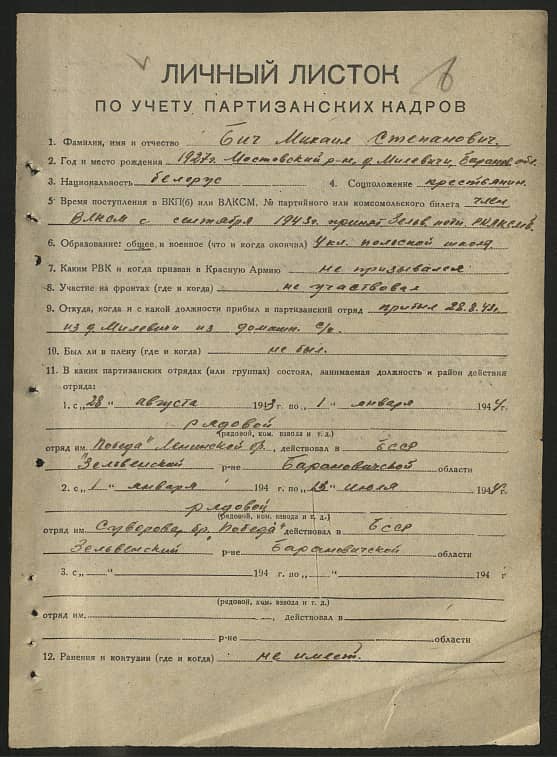 ЛИЧНЫЙ ЛИСТОК
ПО УЧЕТУ ПАРТИЗАНСКИХ КАДРОВ
1. Фамилия, имя и отчество Бич Михаил Степанович.
2. Год и место рождения 1927г. Мостовский р-н, д. Милевичи Баранов. обл.
3. Национальность белорус 4. Соцположение крестьянин.
5 Время поступления в ВКП(б) или ВЛКСМ, № партийного или комсомольского билета член
ВЛКСМ с сентября 1943г. принят Зельв.
6. Образование: общее и военное (что и когда окончил) 4 кл. польской школы
7. Каким РВК и когда призван в Красную Армию не призывался
8. Участие на фронтах (где и когда) не участвовал
9. Откуда, когда и с какой должности прибыл в партизанский отряд прибыл 28.8.43г.
из д. Милевичи из домашн. с/х.
10. Был ли в плену (где и когда) не был.
11. В каких партизанских отрядах (или группах) состоял, занимаемая должность и район действия
отряда:
1. с „28" августа 1943 г. по „1" января 1944 г.
рядовой
(рядовой, ком. взвода и т. д.)
отряд им. Победа" Ленинской бр., действовал в БССР
Зельвенский р-не Барановичской области
2. с „1" января 194 г. по „13" июля 1944 г.
рядовой
(рядовой, ком. взвода и т. д.)
отряд им. Суворова, бр. "Победа" действовал в БССР
Зельвенский р-не Барановичской области
3. с „ " 194 г. по „ " 194 г
(рядовой, ком. взвода и т. д.)
отряд им. , действовал в
р-не области
12. Ранения и контузии (где и когда) не имеет.